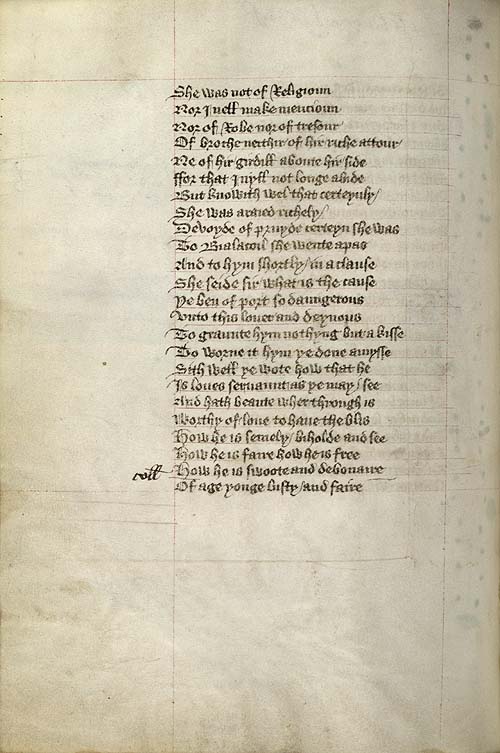 She was not of Religioun
Nor I nell make mencioun
Nor of Robe nor of tresour
Of broche neithir of hir riche attour
Ne of hir girdill aboute hir side
ffor that I nyll not longe abide
But knowith wel that certeynly
She was araied richely
Devoyde of pruyde certeyn she was
To Bialacoil she wente apas
And to hym shortly / in a clause
She seide sir what is the cause
Ye ben of port so daungerous
Vnto this louer and deynous
To graunte hym nothyng but a kisse
To worne it hym ye done amysse
Sith well ye wote how that he
Is loues seruaunt as ye may / see
And hath beaute wher through is
Worthy of loue to haue the blis
How he is semely / biholde and see
How he is faire how he is free
coll How he is swoote and debonaire
Of age yonge lusty / and faire